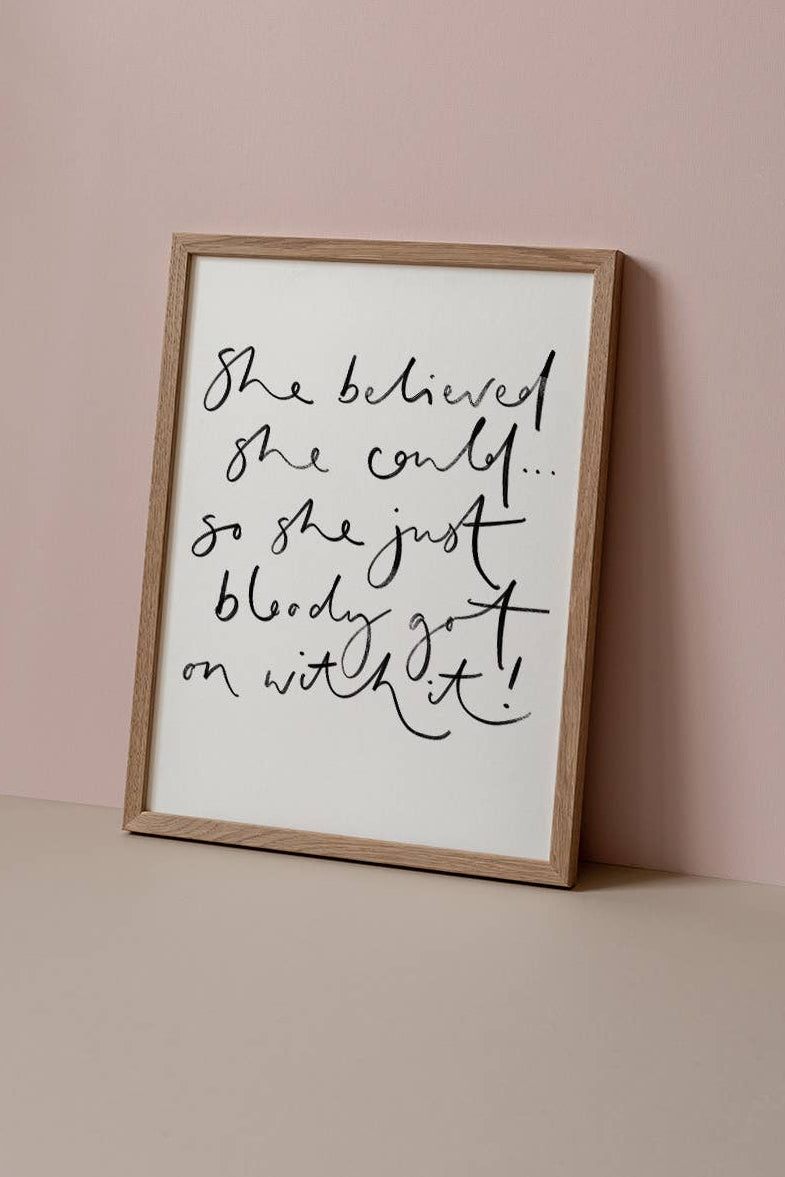 She believed
she could...
so she just
bloody got
on with it!